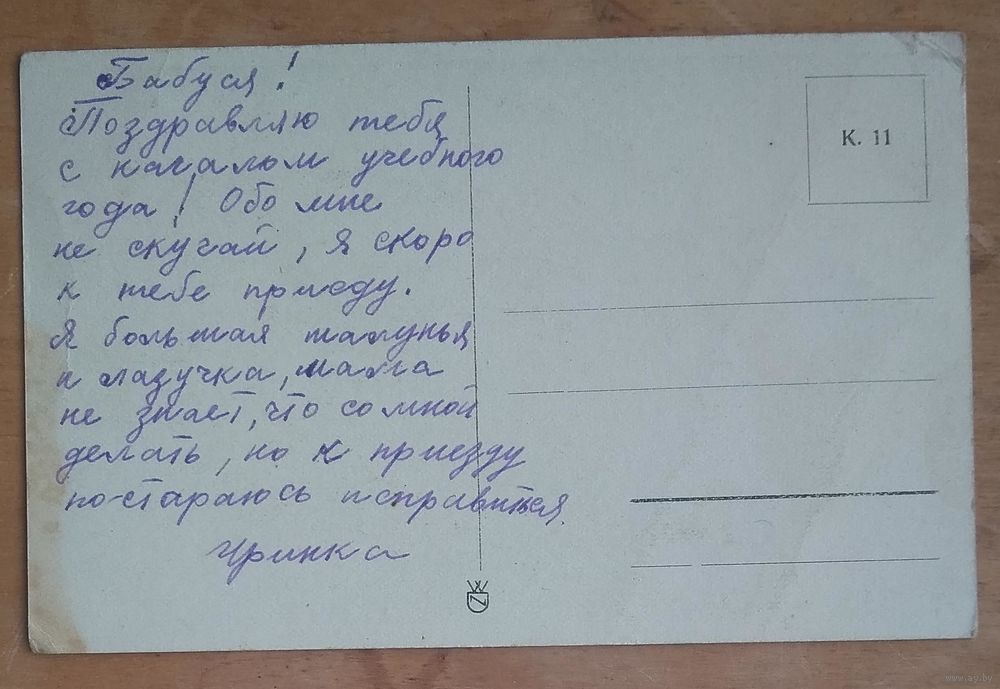 Бабуся!
Поздравляю тебя
с началом учебного
года! Обо мне
не скучай, я скоро
к тебе приеду.
Я большая шалунья
и лазучка, мама
не знает, что со мной
делать, но к приезду
по-стараюсь исправиться.
Иринка
К. 11
www.ay.by